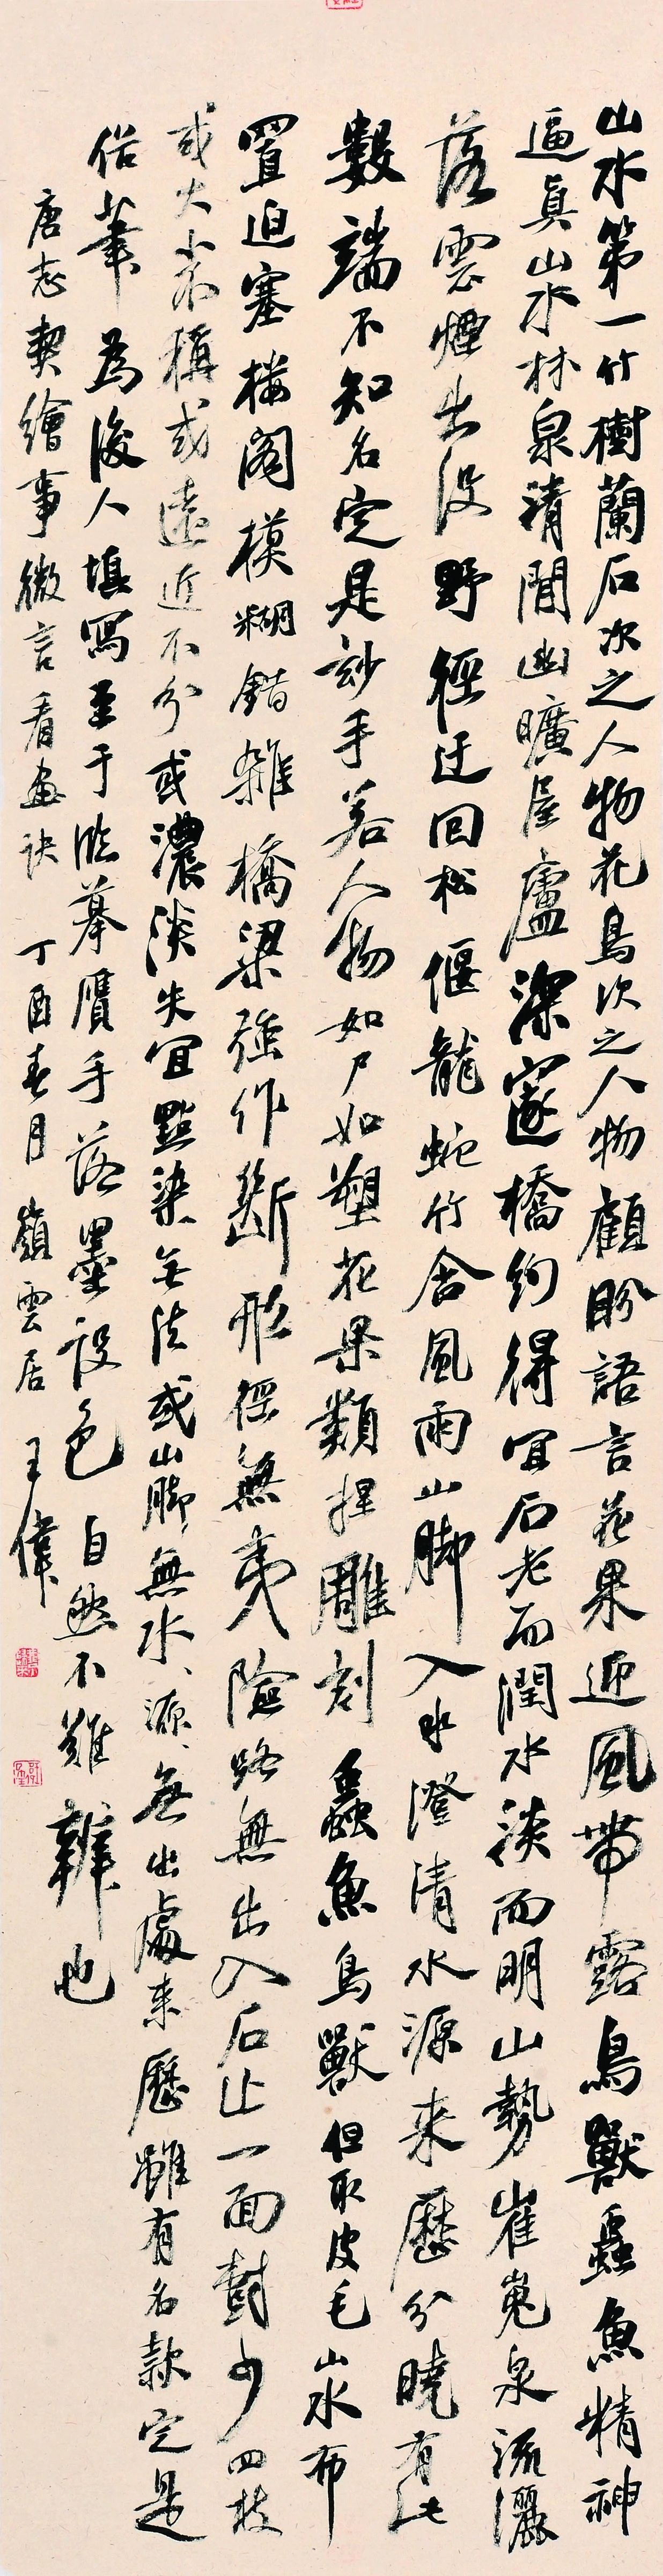 山水第一竹樹蘭石次之人物花鳥次之人物顧盼語言花果迎風帶露鳥獸蟲魚精神
逼真山水林泉清閒幽曠屋廬深邃橋約得宜石老而潤水淡而明山勢崔嵬泉流灑
落雲煙出沒野徑迂回松偃龍蛇竹含風雨山腳入水澄清水源来歷分曉有此
數端不知名定是玅手若人物如尸如塑花果類捏雕刻蟲魚鳥獸但取皮毛山水布
置迫塞樓阁模糊錯雜橋梁強作斷形徑無夷險路無出入石止一面對少四枝
或大小不稱或遠近不分或濃淡失宜點染無法或山腳無水水源無出處来歷雖有名款定是
俗筆為後人填寫至于臨摹贋手落墨設色自然不難辨也
唐志契繪事微言看畫訣丁酉春月嶺雲居王偉